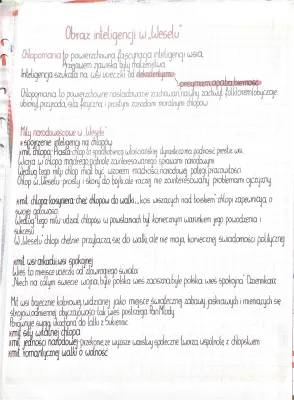 Obraz inteligencji w „Weselu”
Chłopomania to powierzchowna fascynacja inteligencji wsią.
Przejawem zjawiska były małżeństwa.
Inteligencja szukała na wsi ucieczki od dekadentyzmu
Chłopomania to powierzchowne naśladowanie zachowań, naiwny zachwyt folklorem, obyczajem
ubiorem, przyrodą, siłą fizyczną i prostym zasadom moralnym chłopów
Mity narodowościowe w „Weselu”
spojrzenie inteligencji na chłopów
mit chłopa Piasta
Wiara w chłopa mądrego zainteresowanego sprawami narodowymi
Według tego mitu chłop miał być wzorem mądrości narodowej, potęgi, pracowitości
Chłop w „Weselu” prosty i skory do bójki, ale raczej nie zainteresowany problemami ojczyzny
mit chłopa kosyniera: chęć chłopów do walki, kos wiszących nad łóżkiem chłopi zapewniają o
swojej gotowości
Według tego mitu udział chłopów w powstaniach był koniecznym warunkiem jego powodzenia i
sukcesu
W „Weselu” chłopi chętnie przyłączą się do walki, ale nie mają koniecznej świadomości politycznej
mit wsi arkadii: wsi spokojnej
Wieś to miejsce ucieczki od zdawnego świata
„Niech na całym świecie wojna, byle polska wieś zaciszna, byle polska wieś spokojna” Dziennikarz
Mit wsi bajecznie kolorowej widzianej jako miejsce swoistej zabawy, jaskrawych i mieniących się
strojów, odmiennej obyczajowości tak wieś postrzega Pan Młody
Porównuje swoją ukochaną do lalki z Sukiennic
mit siły witalnej chłopa
mit jedności narodowej: przekonanie, że wyższe warstwy społeczne tworzą wspólnotę z chłopstwem.
mit romantycznej walki o wolność